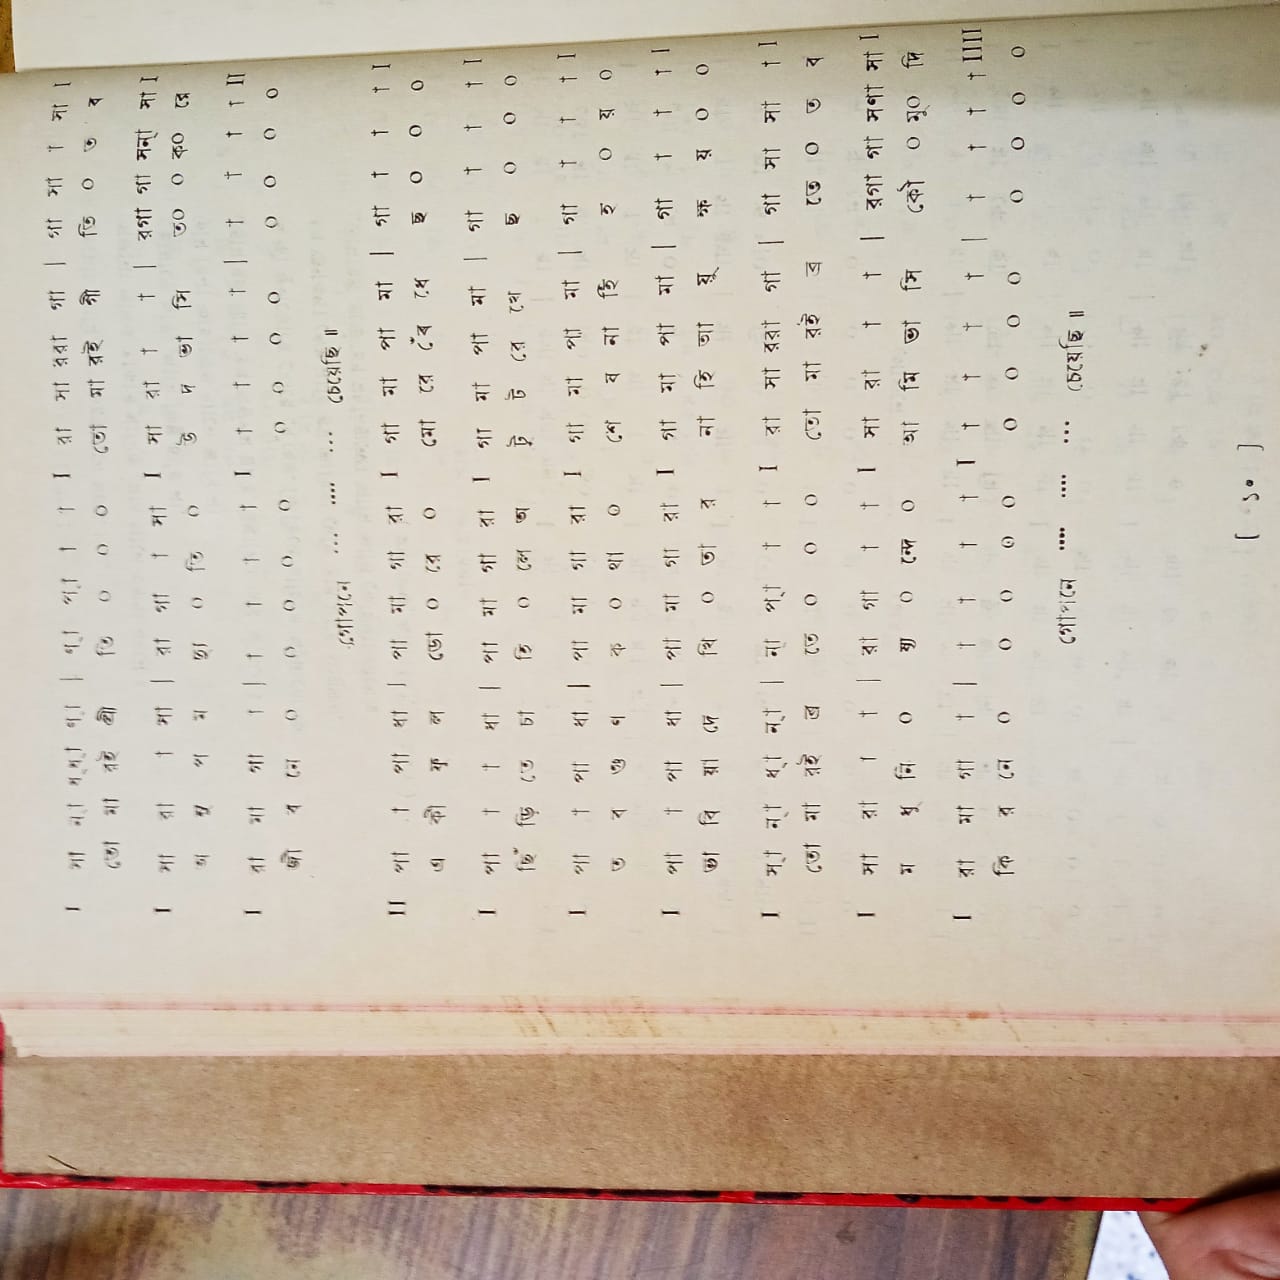 I সা ন্‌া ধ্‌ধ্‌া ণ্‌া | ণ্‌া প্‌া † † I রা সা ররা গা | গা সা † সা I
তো মা রই শ্রী তি ০ ০ ০ তো মা রই গী তি ০ ত ব
I সা রা † সা | রা গা † সা I সা রা † † | রগা গা সন্‌া সা I
অ মু প ম ত্মা ০ তি ০ উ দ ভা সি ত০ ০ ক০ রে
I রা মা গা † | † † † † I † † † † | † † † † II
জী ব নে ০ ০ ০ ০ ০ ০ ০ ০ ০ ০ ০ ০ ০
গোপনে .... .... ... চেয়েছি ॥
II পা † পা ধা | পা মা গা রা I গা মা পা মা | গা † † † I
এ কী ফু ল ডো ০ রে ০ মো রে বেঁ ধে ছ ০ ০ ০
I পা † † ধা | পা মা গা রা I গা মা পা মা | গা † † † I
ছিঁ ড়ি তে চা হি ০ লে অ টু ট রে খে ছ ০ ০ ০
I পা † পা ধা | পা মা গা রা I গা মা পা মা | গা † † † I
ত ব গু ণ ক ০ থা ০ শে ব না হি হ ০ য় ০
I পা † পা ধা | পা মা গা রা I গা মা পা মা | গা † † † I
ভা বি য়া দে খি ০ তা র না হি আ য়ু ক্ষ য় ০ ০
I স্‌া ন্‌া ধ্‌া ন্‌া | ন্‌া প্‌া † † I রা সা ররা গা | গা সা সা † I
তো মা রই ব্র তে ০ ০ ০ তো মা রই ব্র তে ০ ত ব
I সা রা † † | রা গা † † I সা রা † † | রগা গা সণা সা I
ম ধু নি ০ স্য ০ ন্দে ০ আ মি ভা সি কৌ ০ মু০ দি
I রা মা গা † | † † † † I † † † † | † † † † IIII
কি র নে ০ ০ ০ ০ ০ ০ ০ ০ ০ ০ ০ ০ ০
গোপনে .... .... ... চেয়েছি ॥
[ ১০ ]